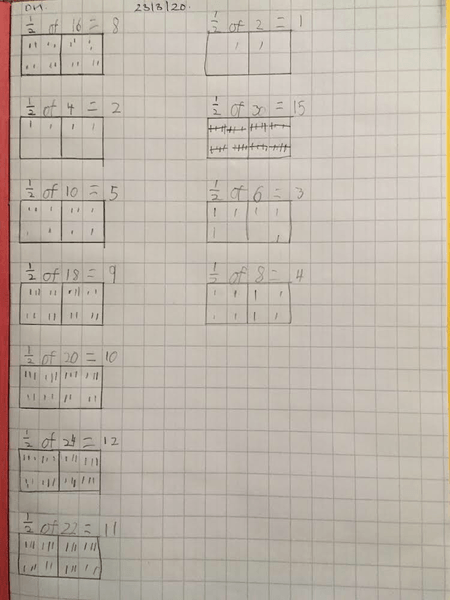 DM.
23/3/20.
1/2 of 16 = 8
1/2 of 4 = 2
1/2 of 10 = 5
1/2 of 18 = 9
1/2 of 20 = 10
1/2 of 24 = 12
1/2 of 22 = 11
1/2 of 2 = 1
1/2 of x = 15
1/2 of 6 = 3
1/2 of 8 = 4